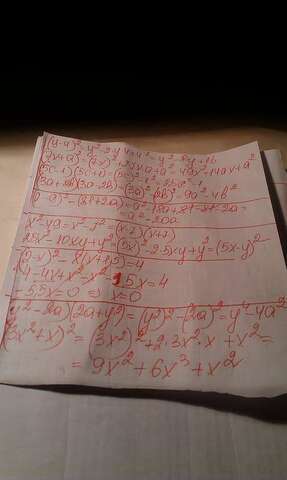 (y-4)²=y²-2·y·4+4²=y²-8y+16
(7x+a)²=(7x)²+2·7x·a+a²=49x²+14ax+a²
(5c-1)(5c+1)=(5c)²-1²=25c²-1
(3a+2b)(3a-2b)=(3a)²-(2b)²=9a²-4b²
=a²-20a
25x²-10xy+y²=(5x)²-2·5x·y+y²=(5x-y)²
4-4x+x²-x²-1,5x=4
-5,5x=0 ⇒ x=0
(y²-2a)(2a+y²)=(y²)²-(2a)²=y⁴-4a²
(3x²+x)²=(3x²)²+2·3x²·x+x²=
=9x²+6x³+x²